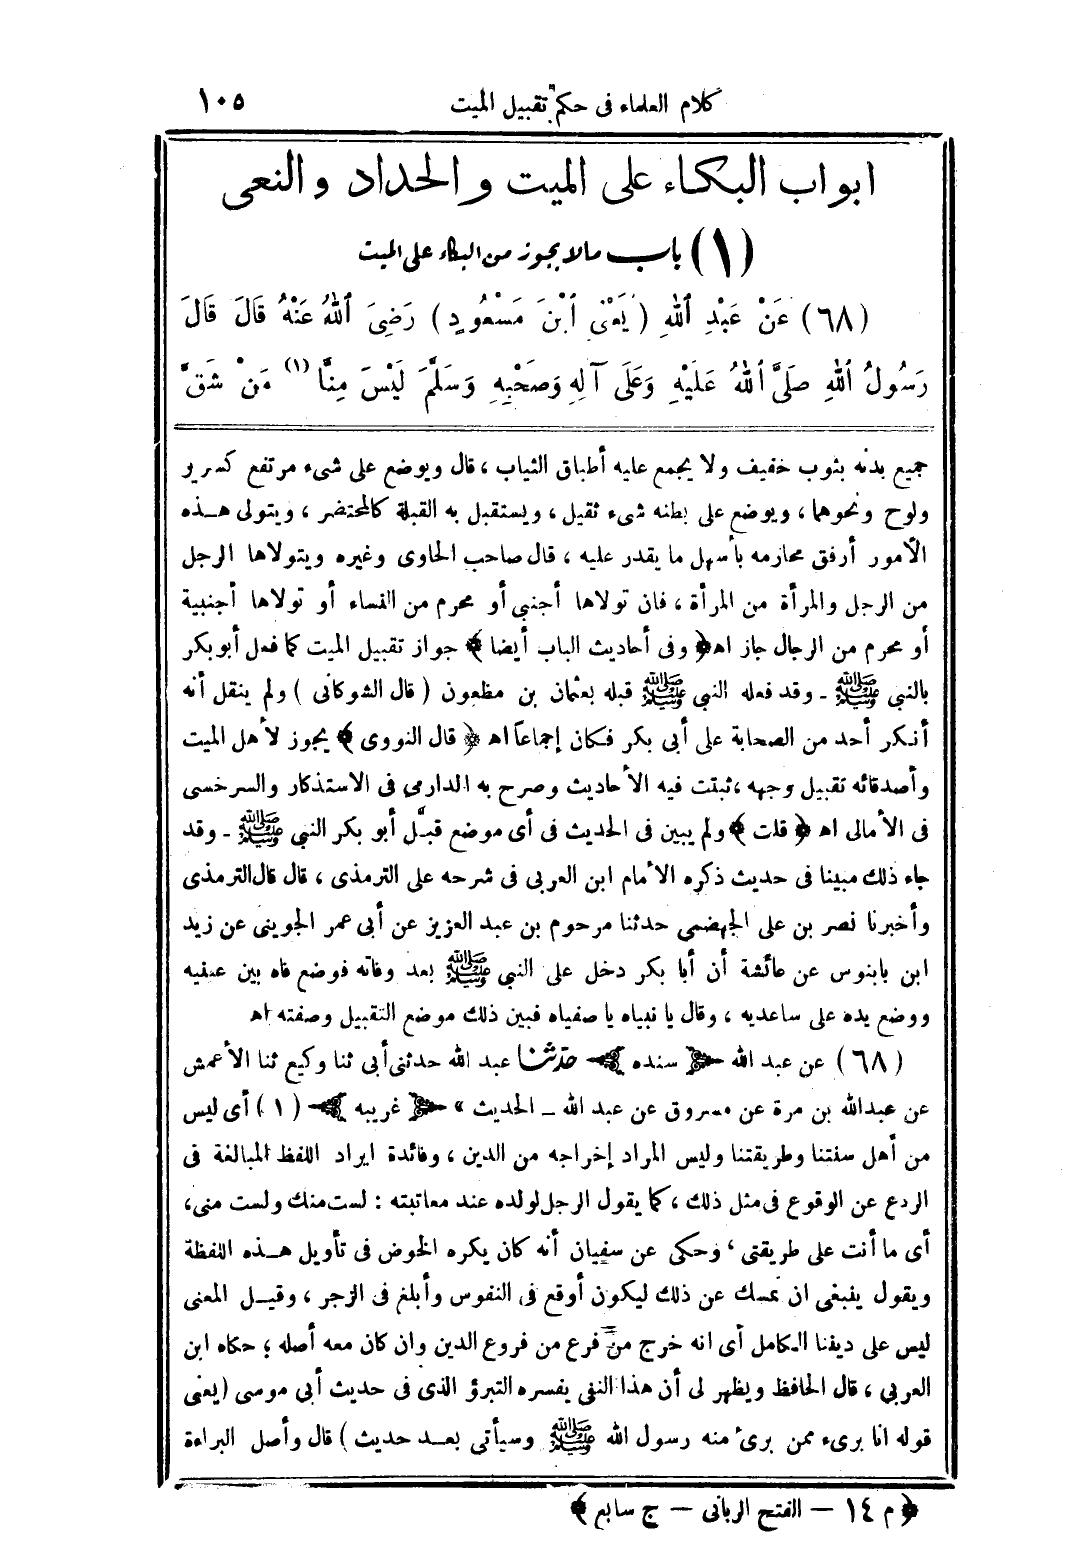 كلام العلماء فى حكم تقبيل الميت ١٠٥
ابواب البكاء على الميت والحداد والنعى
(١) باب مالا يجوز من البكاء على الميت
(٦٨) عَنْ عَبْدِ اللهِ (يَعْنِى ابْنَ مَسْعُودٍ) رَضِىَ اللهُ عَنْهُ قَالَ قَالَ
رَسُولُ اللهِ صَلَّى اللهُ عَلَيْهِ وَعَلَى آلِهِ وَصَحْبِهِ وَسَلَّمَ لَيْسَ مِنَّا (١) مَنْ شَقَّ
جميع بدنه بثوب خفيف ولا يجمع عليه أطباق الثياب ، قال ويوضع على شىء مرتفع كسرير
ولوح ونحوهما ، ويوضع على بطنه شىء ثقيل ، ويستقبل به القبلة كالمحتضر ، ويتولى هـذه
الأمور أرفق محارمه بأسهل ما يقدر عليه ، قال صاحب الحاوى وغيره ويتولاها الرجل
من الرجل والمرأة من المرأة ، فان تولاها أجنبى أو محرم من النساء أو تولاها أجنبية
أو محرم من الرجال جاز اه ﴿ وفى أحاديث الباب أيضا ﴾ جواز تقبيل الميت كما فعل أبوبكر
بالنبى ﷺ ـ وقد فعله النبى ﷺ قبله بعثمان بن مظعون ( قال الشوكانى ) ولم ينقل أنه
أنكر أحد من الصحابة على أبى بكر فكان إجماعاً اه ﴿ قال النووى ﴾ يجوز لأهل الميت
وأصدقائه تقبيل وجهه ، ثبتت فيه الأحاديث وصرح به الدارمى فى الاستذكار والسرخسى
فى الأمالى اه ﴿ قلت ﴾ ولم يبين فى الحديث فى أى موضع قبَّل أبو بكر النبى ﷺ ـ وقد
جاء ذلك مبينا فى حديث ذكره الأمام ابن العربى فى شرحه على الترمذى ، قال قال الترمذى
وأخبرنا نصر بن على الجهضمى حدثنا مرحوم بن عبد العزيز عن أبى عمر الجوينى عن زيد
ابن بابنوس عن عائشة أن أبا بكر دخل على النبى ﷺ بعد وفاته فوضع فاه بين عينيه
ووضع يده على ساعديه ، وقال يا نبياه يا صفياه فبين ذلك موضع التقبيل وصفته اه
(٦٨) عن عبد الله ﴿ سنده ﴾ حدثنا عبد الله حدثنى أبى ثنا وكيع ثنا الأعمش
عن عبدالله بن مرة عن مسروق عن عبد الله ـ الحديث » ﴿ غريبه ﴾ (١) أى ليس
من أهل سنتنا وطريقتنا وليس المراد إخراجه من الدين ، وفائدة ايراد اللفظ المبالغة فى
الردع عن الوقوع فى مثل ذلك ، كما يقول الرجل لولده عند معاتبته : لست منك ولست منى ،
أى ما أنت على طريقتى ، وحكى عن سفيان أنه كان يكره الخوض فى تأويل هـذه اللفظة
ويقول ينبغى ان نمسك عن ذلك ليكون أوقع فى النفوس وأبلغ فى الزجر ، وقيـل المعنى
ليس على ديننا الكامل أى انه خرج من فرع من فروع الدين وان كان معه أصله ؛ حكاه ابن
العربى ، قال الحافظ ويظهر لى أن هذا النفى يفسره التبرؤ الذى فى حديث أبى موسى (يعنى
قوله انا برىء ممن برىء منه رسول الله ﷺ وسيأتى بعـد حديث ) قال وأصل البراءة
﴿ م ١٤ — الفتح الربانى — ج سابع ﴾